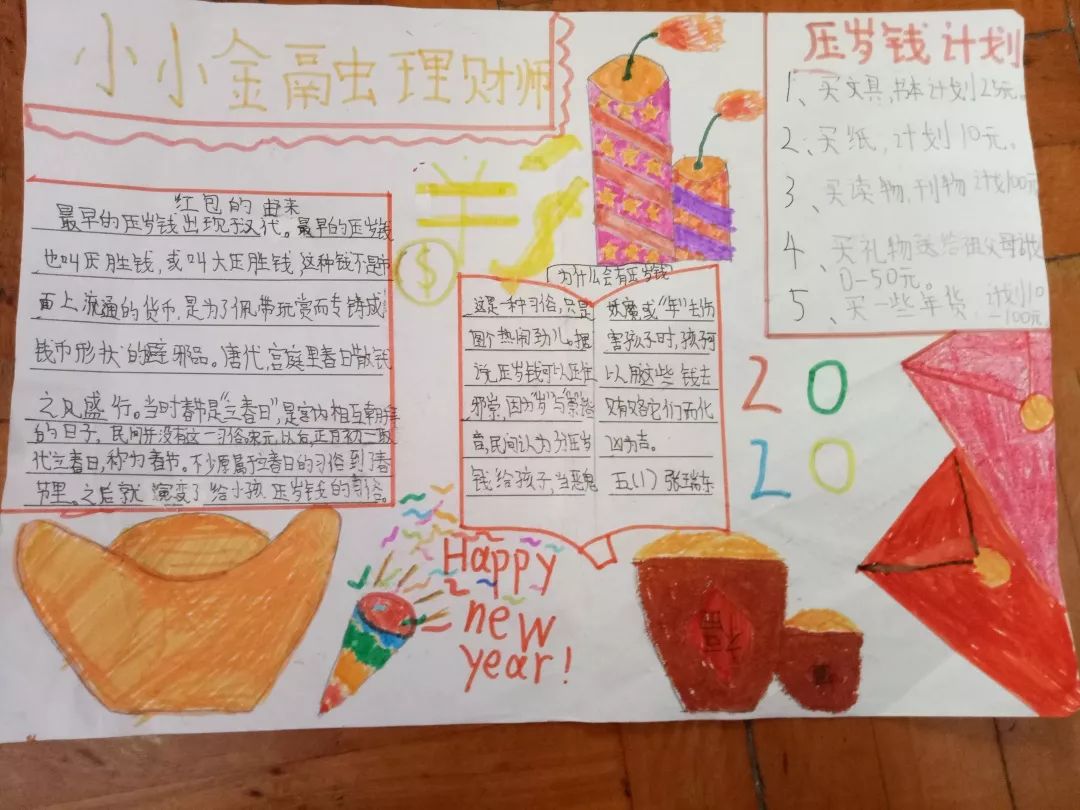 小小金融虫理财师
红包的由来
最早的压岁钱出现于汉代。最早的压岁钱
也叫压胜钱,或叫大压胜钱,这种钱不是市
面上流通的货币,是为了佩带玩赏而专铸成
钱币形状的避邪品。唐代,宫庭里春日散钱
之风盛行。当时春节是“立春日”,是宫内相互朝拜
的日子,民间并没有这一习俗。宋元以后,正月初一取
代立春日,称为春节。不少原属于立春日的习俗到了春
节里。之后就演变了给小孩压岁钱的习俗。
$
为什么会有压岁钱
这是一种习俗,只是
图个热闹劲儿。据
说压岁钱可以压住
邪祟,因为“岁”与“祟”谐
音,民间认为分压岁
钱给孩子,当恶鬼
妖魔或“年”去伤
害孩子时,孩子可
以用这些钱去
贿赂它们而化
凶为吉。
五(1) 张瑞东
压岁钱计划
1、买文具,书本计划25元。
2、买纸,计划10元。
3、买读物,刊物计划100元
4、买礼物送给祖父母计划
0-50元。
5、买一些年货,计划10
-100元
20
20
Happy
new
year!
福